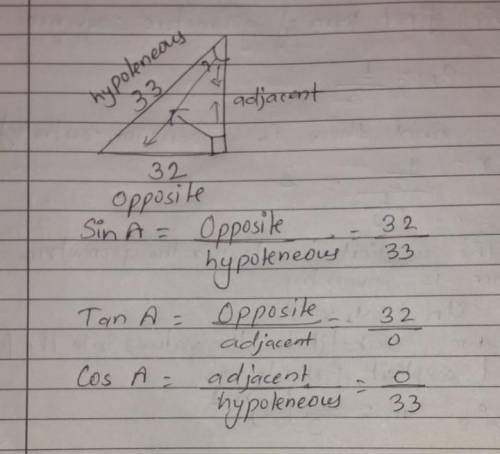 hypoteneous
33
adjacent
32
Opposite
Sin A = Opposite / hypoteneous = 32 / 33
Tan A = Opposite / adjacent = 32 / 0
Cos A = adjacent / hypoteneous = 0 / 33